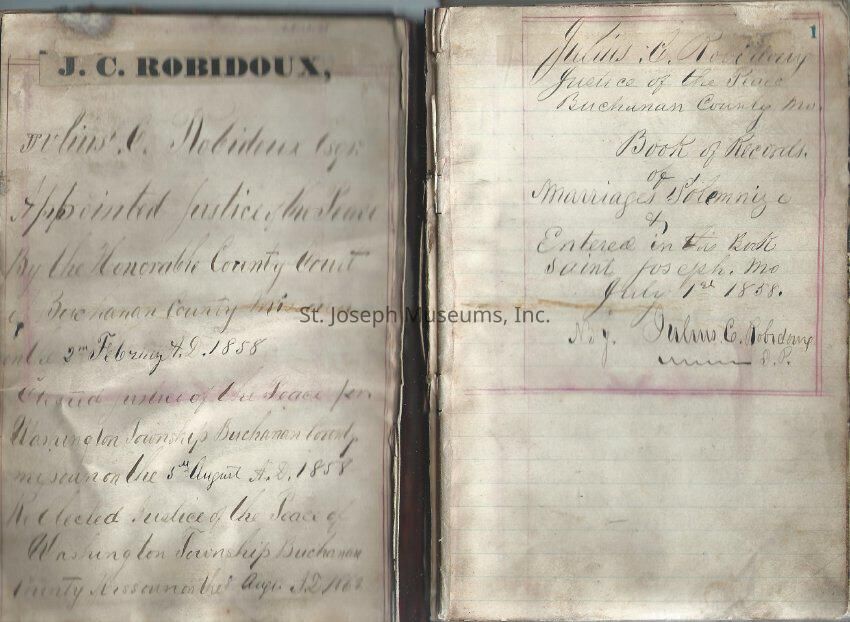 J. C. ROBIDOUX,
Julius C. Robidoux Esqr.
Appointed Justice of the Peace
By the Honorable County Court
Buchanan County Missouri
2nd February A.D. 1858
Elected Justice of the Peace for
Washington Township Buchanan County
Missouri on the 5th August A.D. 1858
Reelected Justice of the Peace of
Washington Township Buchanan
County Missouri on the Augt. A.D.
1
Julius C. Robidoux
Justice of the Peace
Buchanan County Mo.
Book of Records
of
Marriages Solemnize
&
Entered in this Book
Saint Joseph. Mo
July 1st 1858.
By. Julius C. Robidoux
J. P.
St. Joseph Museums, Inc.